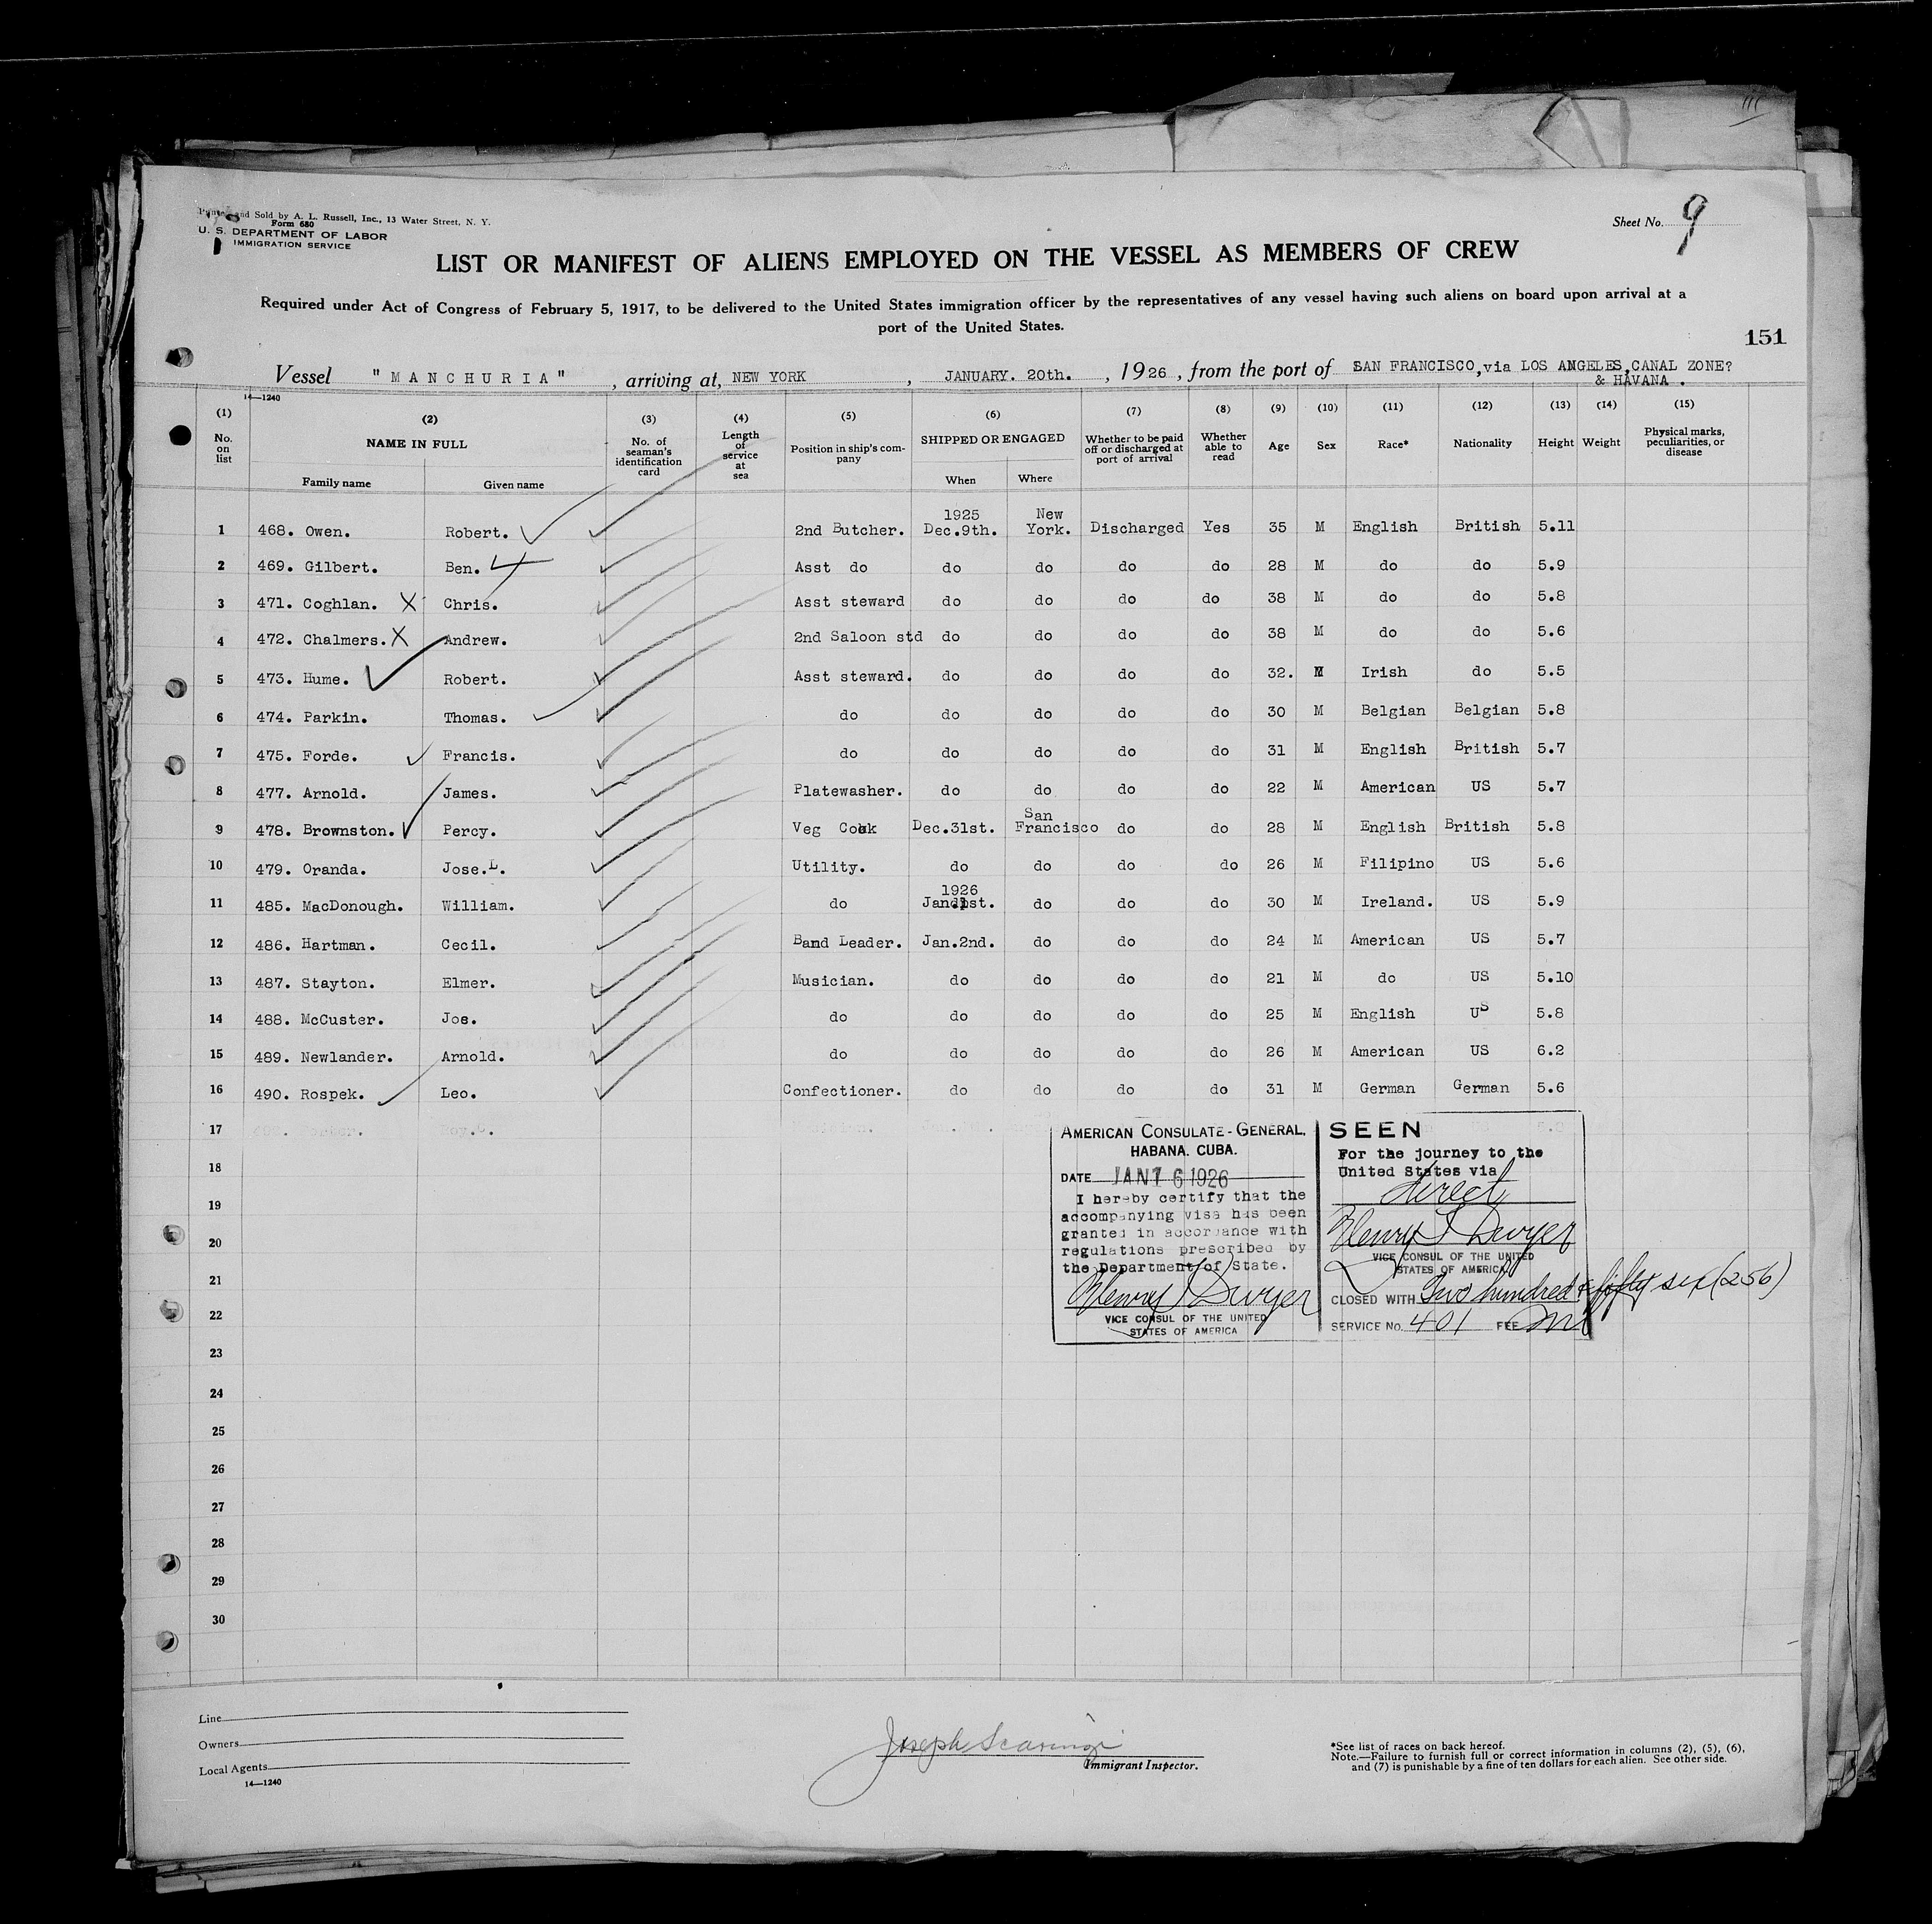 Sold by A. L. Russell, Inc., 13 Water Street, N. Y.
Form 680
U. S. DEPARTMENT OF LABOR
IMMIGRATION SERVICE
Sheet No. 9
LIST OR MANIFEST OF ALIENS EMPLOYED ON THE VESSEL AS MEMBERS OF CREW
Required under Act of Congress of February 5, 1917, to be delivered to the United States immigration officer by the representatives of any vessel having such aliens on board upon arrival at a
port of the United States.
151
Vessel "MANCHURIA", arriving at, NEW YORK, JANUARY. 20th., 1926, from the port of SAN FRANCISCO, via LOS ANGELES, CANAL ZONE?
& HAVANA.
14—1240
(1) (2) (3) (4) (5) (6) (7) (8) (9) (10) (11) (12) (13) (14) (15)
No. on list NAME IN FULL Family name Given name No. of seaman's identification card Length of service at sea Position in ship's company SHIPPED OR ENGAGED When Where Whether to be paid off or discharged at port of arrival Whether able to read Age Sex Race* Nationality Height Weight Physical marks, peculiarities, or disease
1 468. Owen. Robert. 2nd Butcher. 1925 Dec.9th. New York. Discharged Yes 35 M English British 5.11
2 469. Gilbert. Ben. Asst do do do do do 28 M do do 5.9
3 471. Coghlan. X Chris. Asst steward do do do do 38 M do do 5.8
4 472. Chalmers. X Andrew. 2nd Saloon std do do do do 38 M do do 5.6
5 473. Hume. Robert. Asst steward. do do do do 32. M Irish do 5.5
6 474. Parkin. Thomas. do do do do do 30 M Belgian Belgian 5.8
7 475. Forde. Francis. do do do do do 31 M English British 5.7
8 477. Arnold. James. Platewasher. do do do do 22 M American US 5.7
9 478. Brownston. Percy. Veg Cook Dec.31st. San Francisco do do 28 M English British 5.8
10 479. Oranda. Jose.L. Utility. do do do do 26 M Filipino US 5.6
11 485. MacDonough. William. do 1926 Jan.1st. do do do 30 M Ireland. US 5.9
12 486. Hartman. Cecil. Band Leader. Jan.2nd. do do do 24 M American US 5.7
13 487. Stayton. Elmer. Musician. do do do do 21 M do US 5.10
14 488. McCuster. Jos. do do do do do 25 M English US 5.8
15 489. Newlander. Arnold. do do do do do 26 M American US 6.2
16 490. Rospek. Leo. Confectioner. do do do do 31 M German German 5.6
17
18
19
20
21
22
23
24
25
26
27
28
29
30
AMERICAN CONSULATE-GENERAL,
HABANA. CUBA.
DATE JAN 16 1926
I hereby certify that the
accompanying visa has been
granted in accordance with
regulations prescribed by
the Department of State.
Henry T Dwyer
VICE CONSUL OF THE UNITED
STATES OF AMERICA
SEEN
For the journey to the
United States via
direct
Henry T Dwyer
VICE CONSUL OF THE UNITED
STATES OF AMERICA
CLOSED WITH Two hundred & fifty six (256)
SERVICE No. 401 FEE
Line
Owners
Local Agents
14—1240
Joseph Scaringi
Immigrant Inspector.
*See list of races on back hereof.
Note.—Failure to furnish full or correct information in columns (2), (5), (6),
and (7) is punishable by a fine of ten dollars for each alien. See other side.